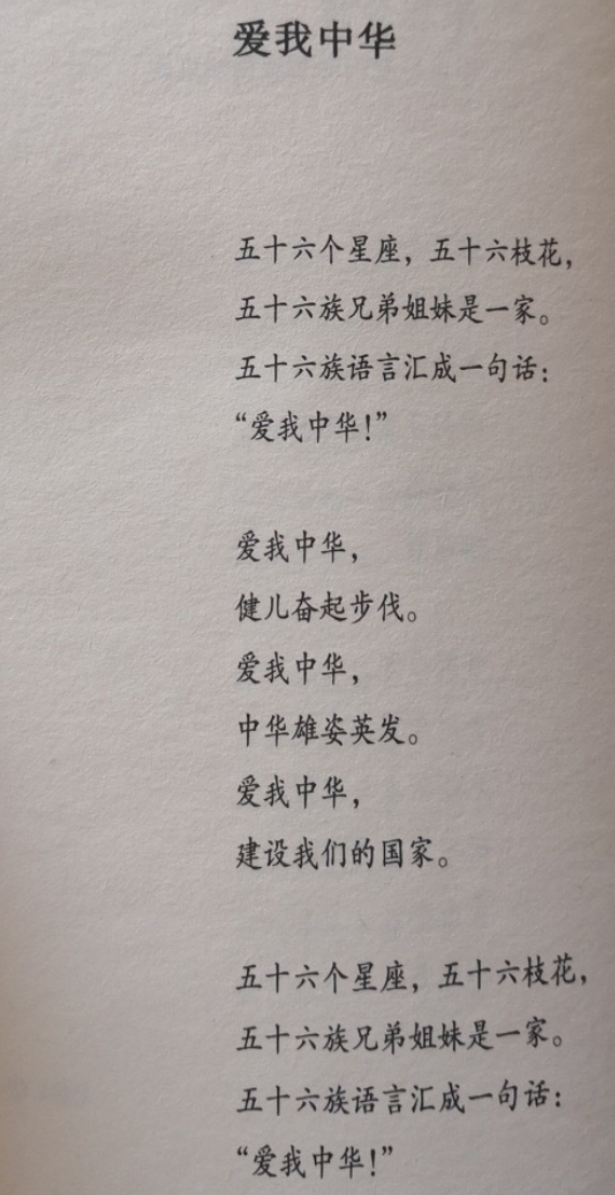 爱我中华
五十六个星座，五十六枝花，
五十六族兄弟姐妹是一家。
五十六族语言汇成一句话：
“爱我中华！”
爱我中华，
健儿奋起步伐。
爱我中华，
中华雄姿英发。
爱我中华，
建设我们的国家。
五十六个星座，五十六枝花，
五十六族兄弟姐妹是一家。
五十六族语言汇成一句话：
“爱我中华！”